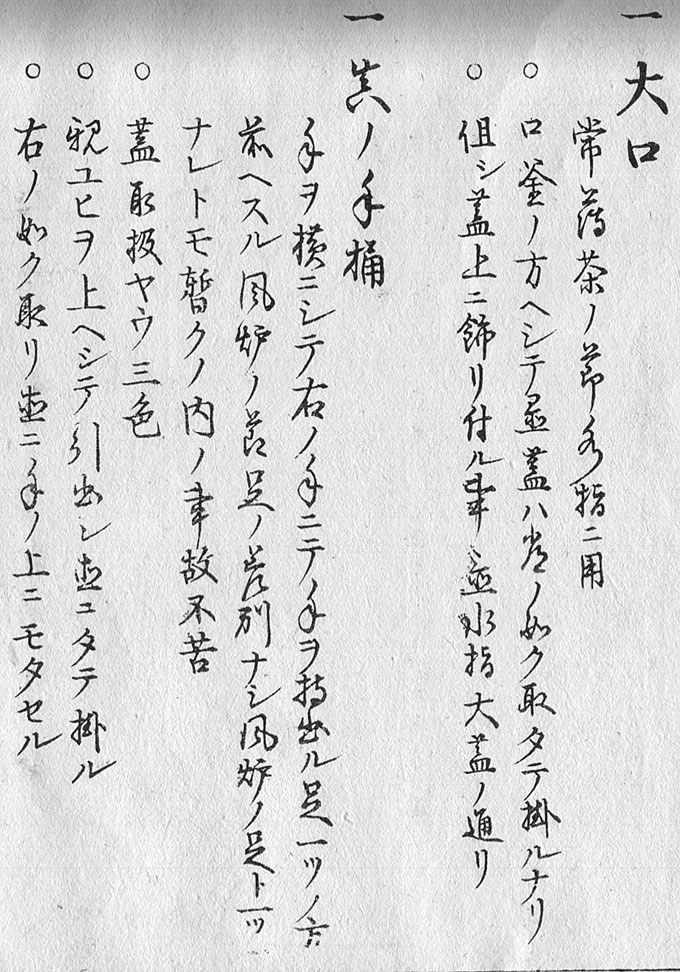 一 大口
常薄茶ノ節水指ニ用
○ 口釜ノ方ヘシテ置蓋ハ常ノ如ク取タテ掛ルナリ
○ 但シ蓋上ニ飾リ付ル事 並水指大蓋ノ通リ
一 真ノ手桶
手ヲ横ニシテ右ノ手ニテノ手ヲ持出ル足一ツノ方
前ヘスル風炉ノ節足ノ差別ナシ風炉ノ足ト一ツ
ナレトモ暫クノ内ノ事故不苦
○ 蓋取扱ヤウ三色
○ 親ユヒヲ上ヘシテ引出シ直ニタテ掛ル
○ 右ノ如ク取リ直ニ手ノ上ニモタセル